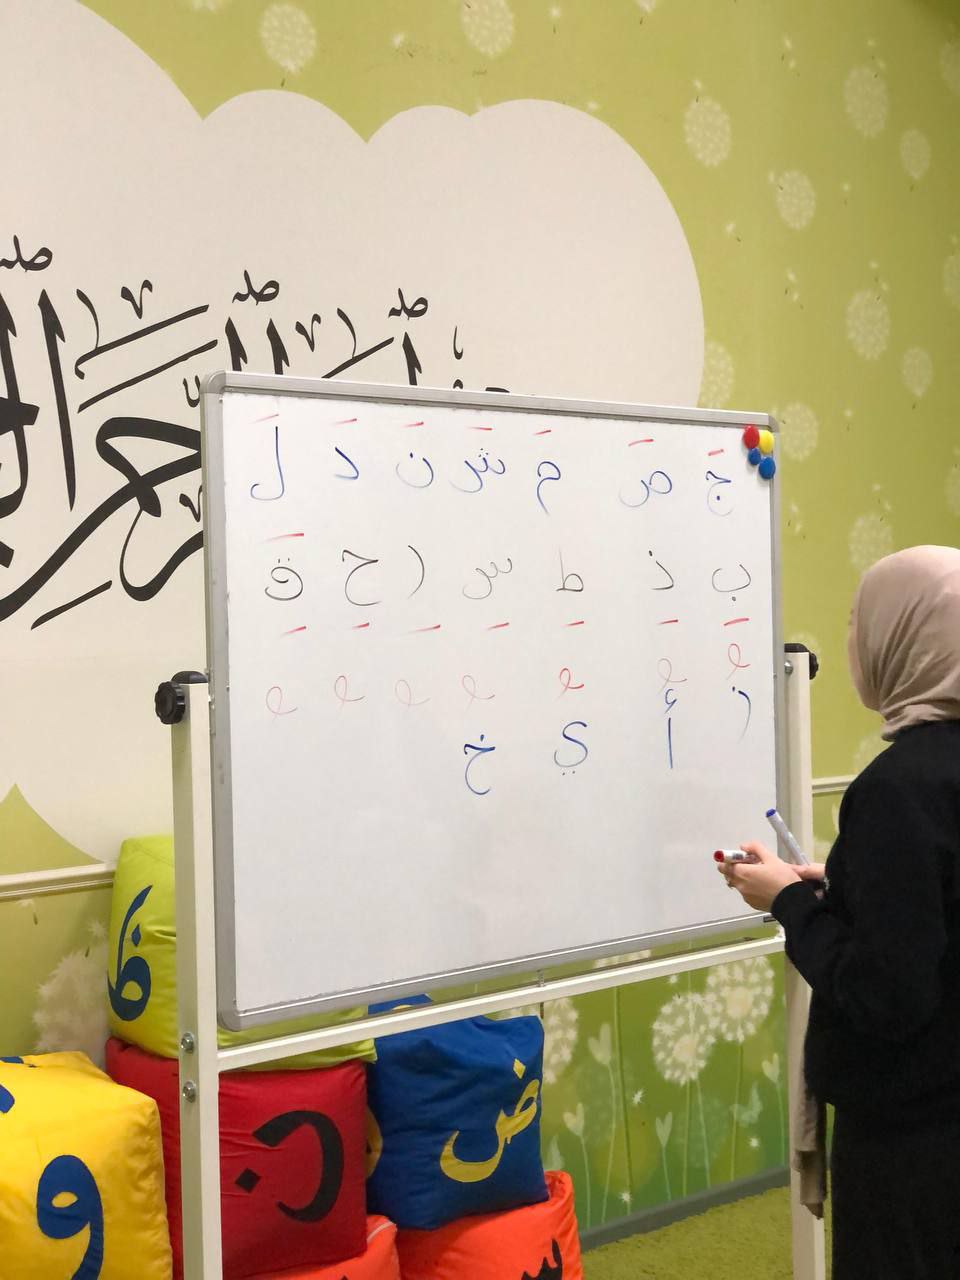 جَ صَ مَ شَ نَ دَ لَ
بِ ذِ طِ سِ رِ حِ قِ
زُ أُ يُ خُ ُ ُ ُ
ظ
ض
ن
و